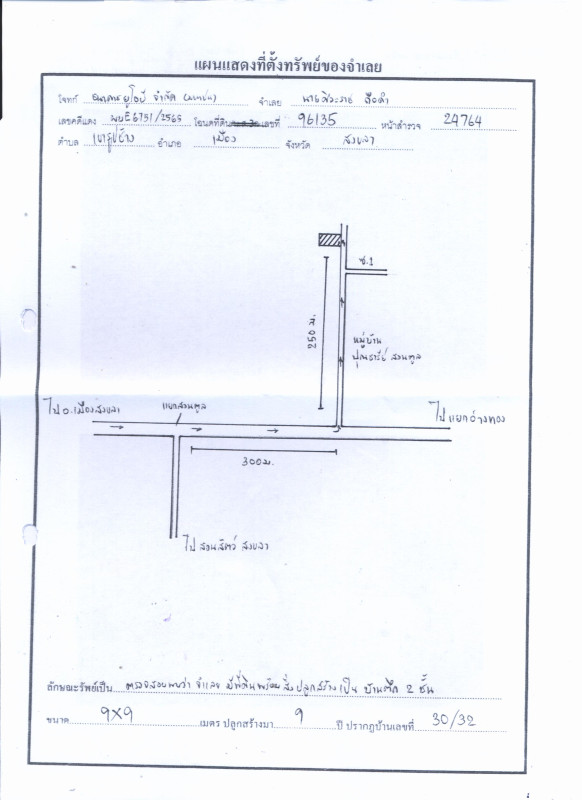 แผนแสดงที่ตั้งทรัพย์ของจำเลย
โจทก์ ธนาคารยูโอบี จำกัด (มหาชน) จำเลย
เลขคดีแดง ผบE6751/2565 โฉนดที่ดินเลขที่ 96135 หน้าสำรวจ 24764
ตำบล เขารูปช้าง อำเภอ เมือง จังหวัด สงขลา
ซ.1
250 ม.
หมู่บ้าน
ปุณธารีย์ สวนตูล
ไป อ.เมืองสงขลา
แยกสวนตูล
ไป แยกอ่างทอง
300ม.
ไป สวนสัตว์ สงขลา
ลักษณะทรัพย์เป็น ตรวจสอบพบว่า จำเลย มีที่ดินพร้อมสิ่งปลูกสร้างเป็น บ้านตึก 2 ชั้น
ขนาด 9x9 เมตร ปลูกสร้างมา 9 ปี ปรากฏบ้านเลขที่ 30/32